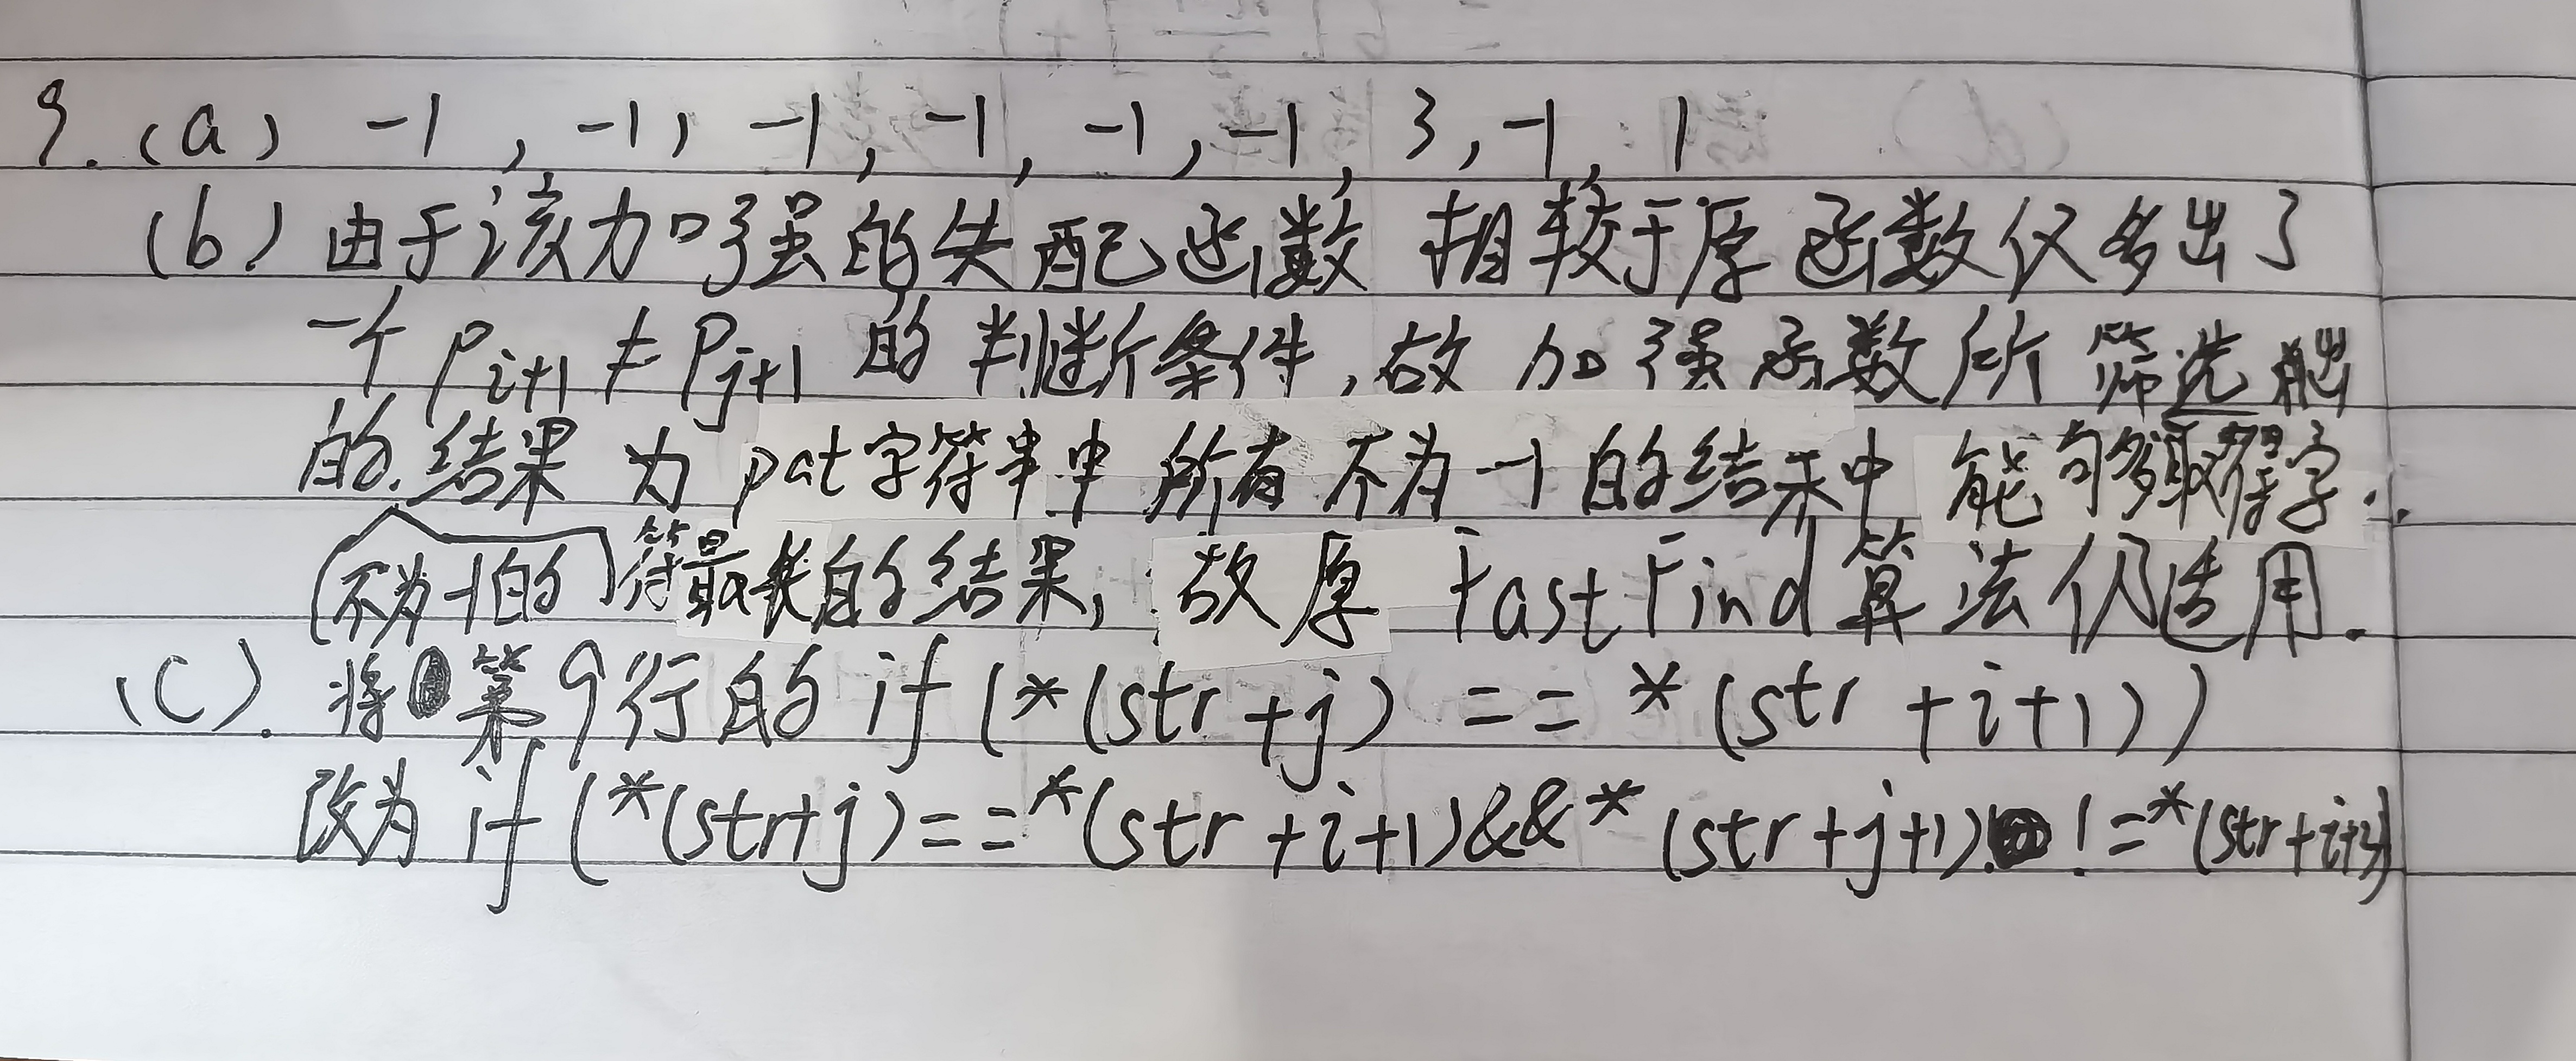 9.(a) -1, -1, -1, -1, -1, -1, 3, -1, 1
(b) 由于该加强的失配函数 相较于原函数仅多出了
一个 P_{i+1} ≠ P_{j+1} 的判断条件,故加强函数所筛选出
的结果为pat字符串中所有不为-1的结果中能够取得字
(不为-1的)符最长的结果,故原FastFind算法仍适用.
(C). 将第9行的 if (*(str+j) == *(str+i+1))
改为 if (*(str+j)==*(str+i+1)&&*(str+j+1) !=*(str+i+2))